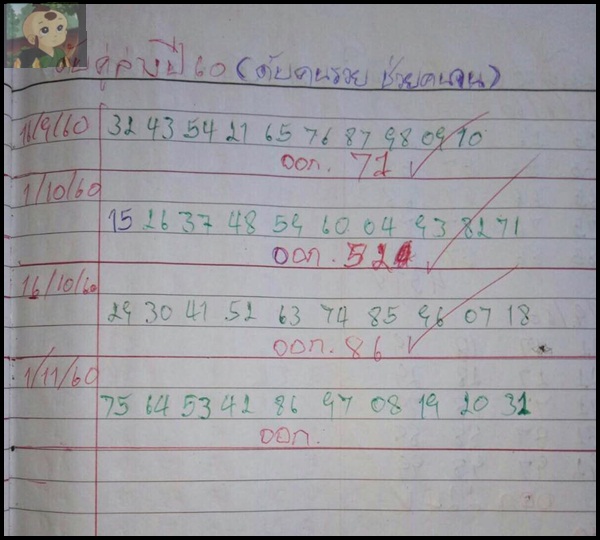 ดับคู่ล่างปี 60 (ดับคนรวย ช่วยคนจน)
16/9/60 32 43 54 21 65 76 87 98 09 10
ออก. 71
1/10/60
15 26 37 48 59 60 04 93 82 71
ออก. 52
16/10/60
29 30 41 52 63 74 85 96 07 18
ออก. 86
1/11/60
75 64 53 42 86 97 08 19 20 31
ออก.